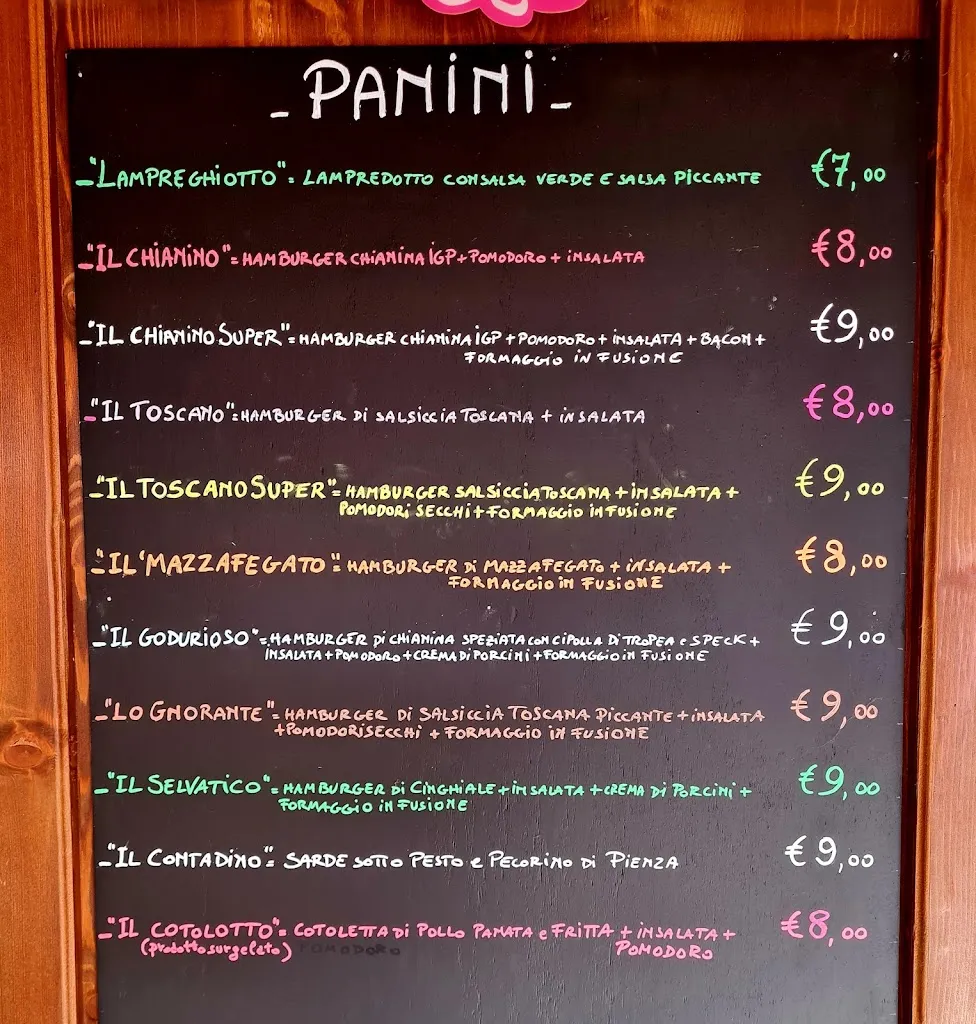 - PANINI -
- "LAMPREGHIOTTO" = LAMPREDOTTO CON SALSA VERDE E SALSA PICCANTE €7,00
- "IL CHIANINO" = HAMBURGER CHIANINA IGP + POMODORO + INSALATA €8,00
- "IL CHIANINO SUPER" = HAMBURGER CHIANINA IGP + POMODORO + INSALATA + BACON + €9,00
FORMAGGIO IN FUSIONE
- "IL TOSCANO" = HAMBURGER DI SALSICCIA TOSCANA + INSALATA €8,00
- "IL TOSCANO SUPER" = HAMBURGER SALSICCIA TOSCANA + INSALATA + €9,00
POMODORI SECCHI + FORMAGGIO IN FUSIONE
- "IL 'MAZZAFEGATO" = HAMBURGER DI MAZZAFEGATO + INSALATA + €8,00
FORMAGGIO IN FUSIONE
- "IL GODURIOSO" = HAMBURGER DI CHIANINA SPEZIATA CON CIPOLLA DI TROPEA e SPECK + €9,00
INSALATA + POMODORO + CREMA DI PORCINI + FORMAGGIO IN FUSIONE
- "LO GNORANTE" = HAMBURGER DI SALSICCIA TOSCANA PICCANTE + INSALATA €9,00
+ POMODORI SECCHI + FORMAGGIO IN FUSIONE
- "IL SELVATICO" = HAMBURGER DI CINGHIALE + INSALATA + CREMA DI PORCINI + €9,00
FORMAGGIO IN FUSIONE
- "IL CONTADINO" = SARDE SOTTO PESTO e PECORINO DI PIENZA €9,00
- "IL COTOLOTTO" = COTOLETTA DI POLLO PANATA e FRITTA + INSALATA + €8,00
(prodotto surgelato) POMODORO POMODORO